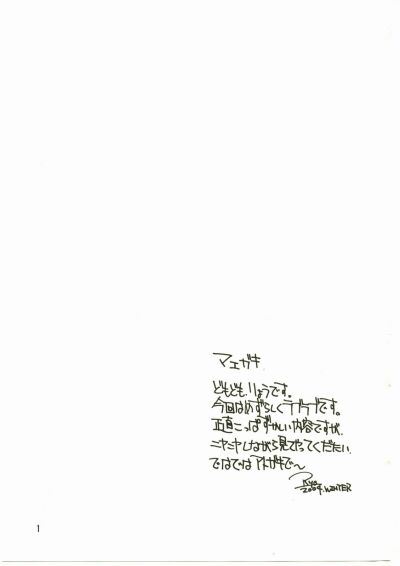 マエガキ
どもども、りょうです。
今回はめずらしくラブラブです。
正直こっぱずかしい内容ですが、
ニヤニヤしながら見てやってください。
ではではアトガキで〜
Ryo
2004. WINTER
1